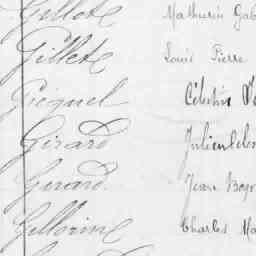 Gillot Mathurin Gab
Gillet Louis Pierre
Gicquel Célestin
Girard Julien
Gérard Jean
Gellorine Charles Ma